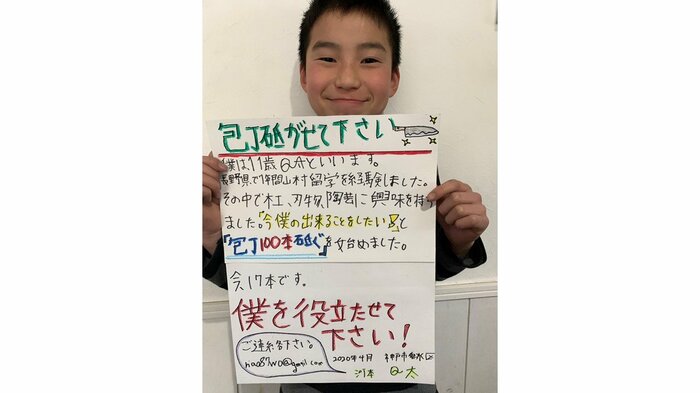 包丁砥がせて下さい
僕は11歳Q太といいます。
長野県で1年間山村留学を経験しました。
その中で木工、刃物、陶芸に興味を持ち
ました。「今僕の出来ることをしたい」と
『包丁100本砥ぐ』を始めました。
今、17本です。
僕を役立たせて
下さい!
ご連絡下さい。
@gmail.com
2020年4月 神戸市垂水区
Q太